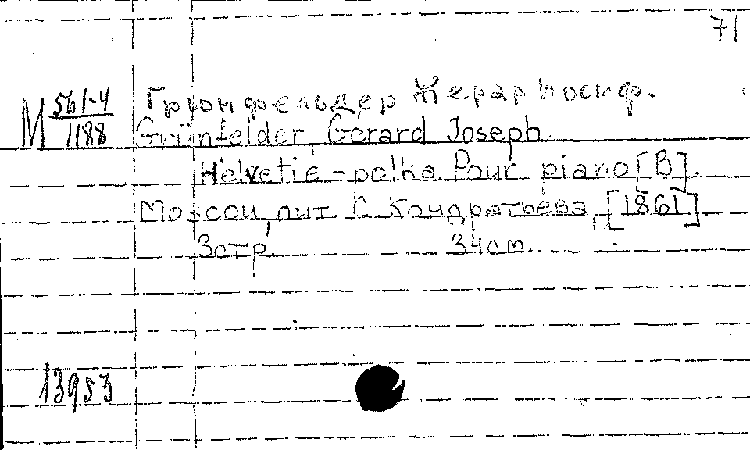 71
М 561-4/1188
Грюнфельдер Жерар Иосиф.
Grünfelder, Gerard Joseph.
Helvetie-polka Pour piano [B].
Moscou, лит С Кондратьева, [1861]
3 стр. 34 cm.
13953